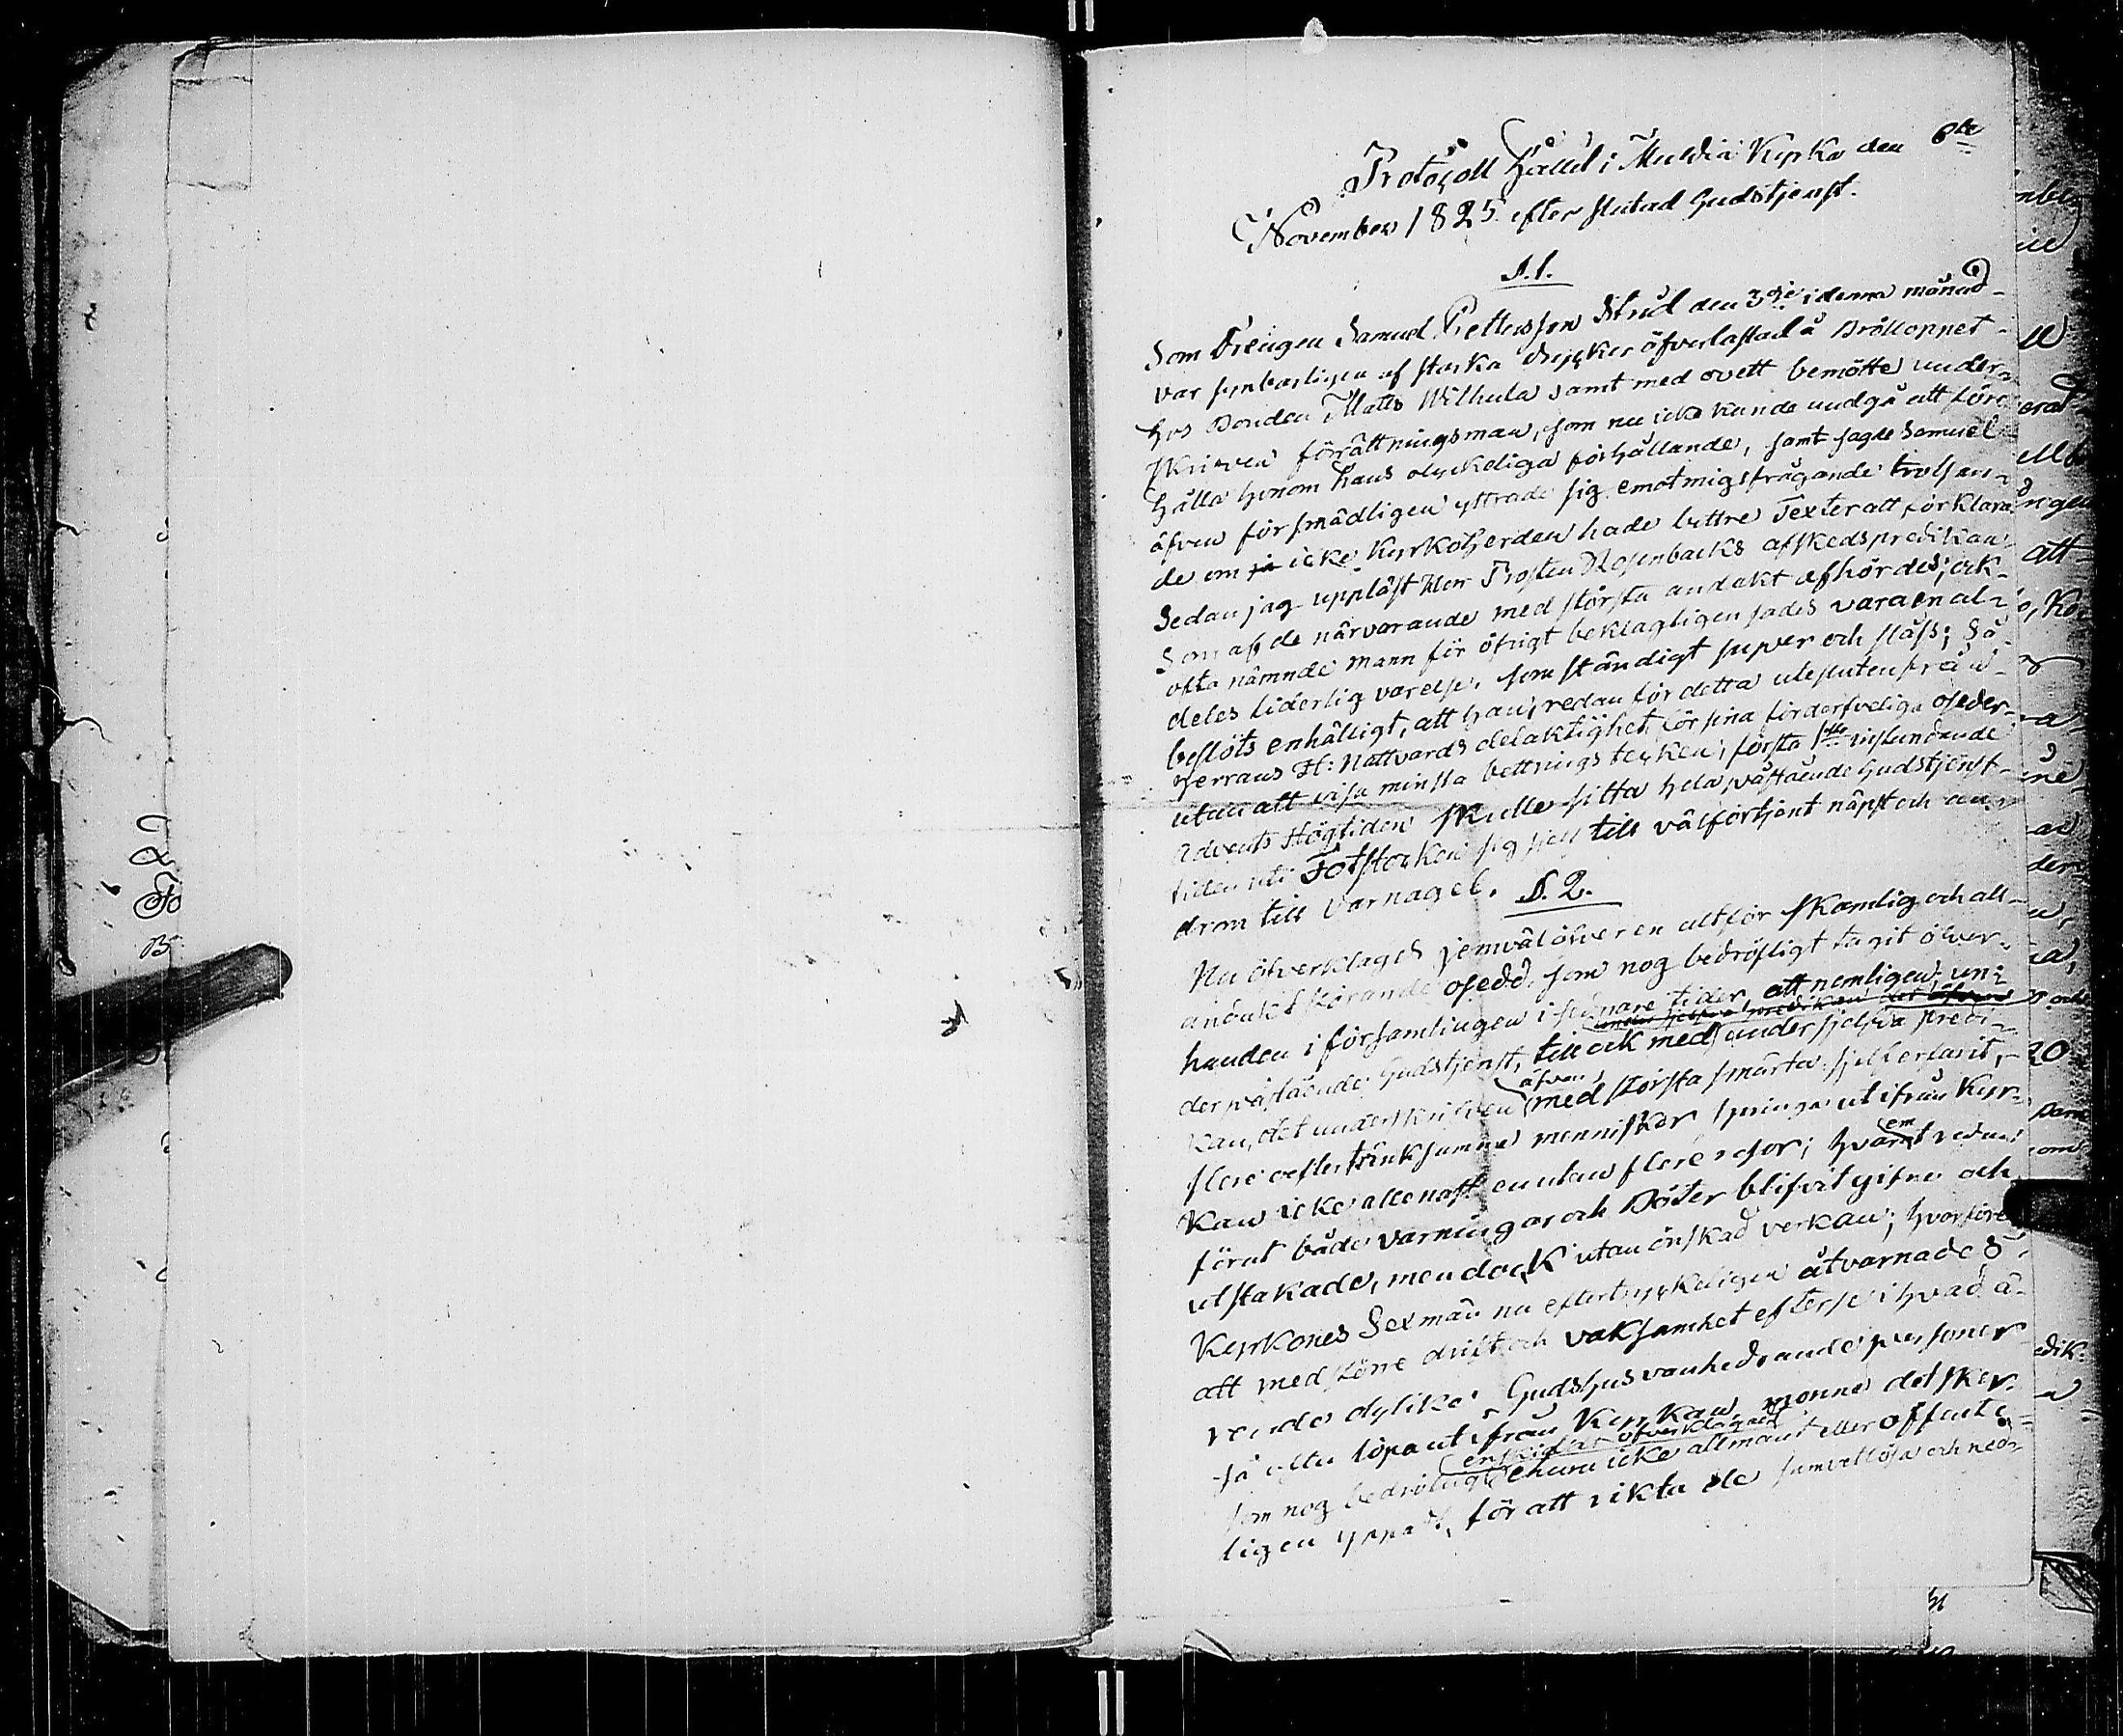 Protocoll hållit i Muldia Kyrka den 6te
November 1825 efter slutad Gudstjenst.
§. 1.
Som Drengen Samuel Pettersson Strid den 3dje i denna månad
var synbarligen af starka drycker öfverlastad å Bröllopet
hos Bonden Matts Wilhula samt med ovett bemötte under-
skrifven förrättningsman, som nu icke kunde undgå att före-
hålla honom hans olyckeliga förhållande, samt sagde Samuel
äfven försmädligen yttrade sig emot mig frågande trolsen-
de om ja icke Kyrkoherden hade bettre Texter att förklara
Sedan jag uppläst Herr Prosten Rosenbacks afskedspredikan
som af de närvarande med största andakt afhördes; och
ofta nämnde mann för öfrigt beklagligen sades vara en al-
deles liderlig varelse, som ständigt super och slåss; Så
beslöts enhälligt, att han, redan för detta utesluten från
Herrans H: Nattvards delaktighet för sina förderfveliga oseder
utan att visa minsta bettrings tecken, första 1sta instundande
Advents Högtiden skulle sitta hela påstående Gudstjenst-
tiden uti Fotstocken sig sjelf till välförtjent näpst och an-
drom till varnagel.
§. 2.
Nu öfverklagades jemväl öfver en altför skamlig och all-
andakt störande osedd, som nog bedröfligt tagit öfver-
handen i församlingen i senare tider, att nemligen un-
der påstående Gudstjenst, till och med under sjelfva predi-
kan, det underskrifven äfven med största smärta sjelf erfarit,
flere oeftertänksamme menniskor springa ut ifrån Kyr-
kan icke allenast en utan flere resor; hvarem redan
förut både varningar och Böter blifvit gifne och
utstakade, men dock utan önskad verkan; hvarföre
Kyrkones Sexmän nu eftertryckeligen åtvarnades
att med större drift och vaksamhet efterse i hvad ä-
rende dylike Gudshus vanhedrande personer
så ofta löpa ut ifrån Kyrkan, monne det sker
som nog bedröfligt enskildt öfverklagad ehuru icke allmänt eller offentl-
ligen yppadt, för att rikta de samvettlösa och ned-